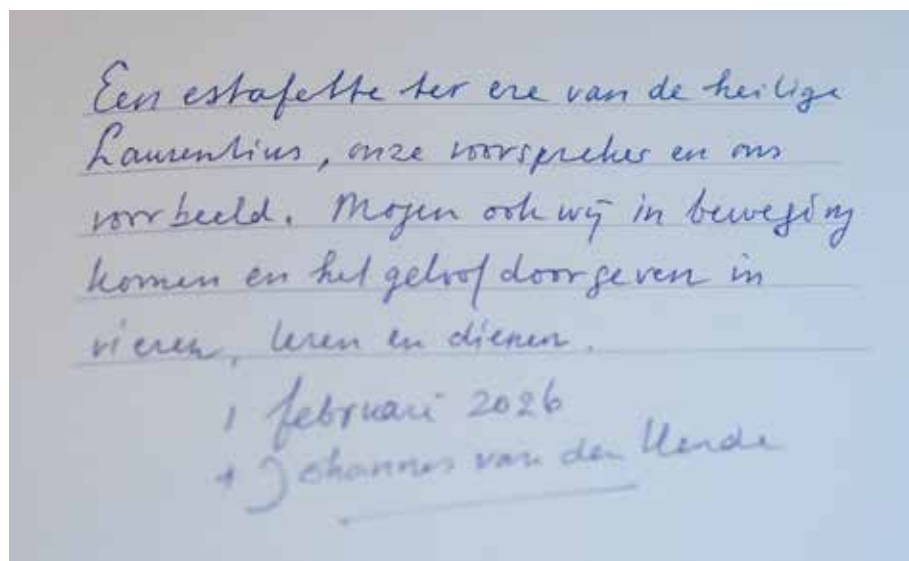 Een estafette ter ere van de heilige
Laurentius, onze voorspreker en ons
voorbeeld. Mogen ook wij in beweging
komen en het geloof doorgeven in
vieren, leren en dienen.
1 februari 2026
+ Johannes van den Hende